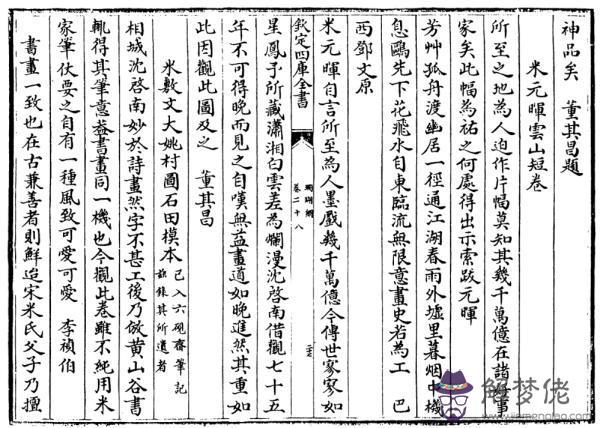 神品矣　董其昌題
米元暉雲山短卷
所至之地為人迫作片幅莫知其幾千萬億在諸好事
家矣此幅為祐之何處得出示索跋元暉
芳艸孤舟渡幽居一徑通江湖春雨外墟里暮烟中機
息鷗先下花飛水自東臨流無限意畫史若為工　巴
西鄧文原
欽定四庫全書
珊瑚網
卷二十八
米元暉自言所至為人墨戲幾千萬億今傳世寥寥如
星鳳予所藏瀟湘白雲差為爛漫沈啓南借觀七十五
年不可得晚而見之自嘆無益畫道如晚進然其重如
此因觀此圖及之　董其昌
米敷文大姚村圖石田模本
已入六硯齋筆記
兹録其所遺者
相城沈啓南妙於詩畫然字不甚工後乃倣黄山谷書
輒得其筆意葢書畫同一機也今觀此卷雖不純用米
家筆仗要之自有一種風致可愛可愛　李禎伯
書畫一致也在古兼善者則鮮迨宋米氏父子乃擅
解梦佬